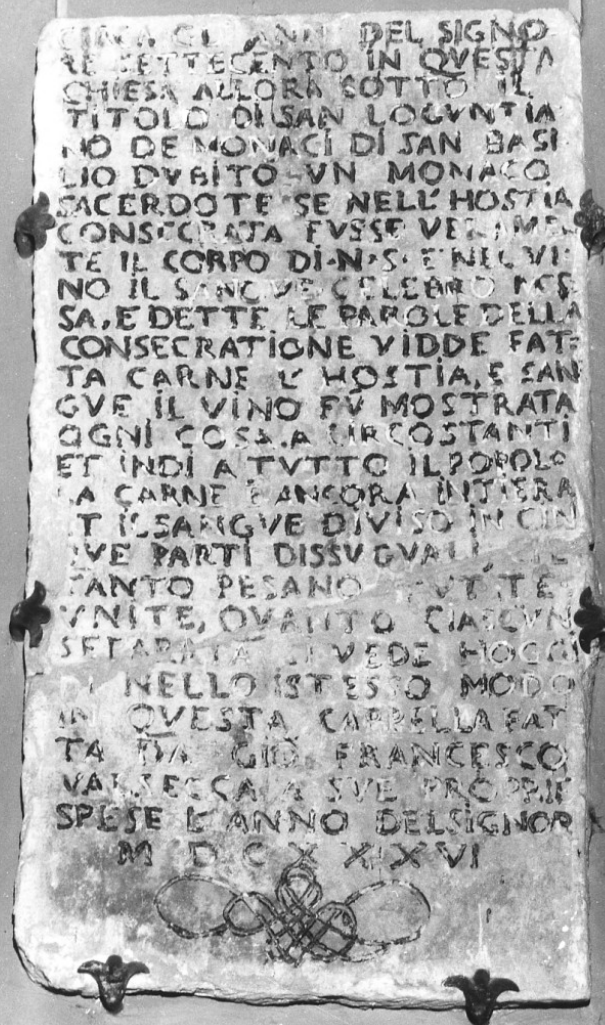 CIRCA GL ANNI DEL SIGNO
RE SETTECENTO IN QVESTA
CHIESA ALLORA SOTTO IL
TITOLO DI SAN LOGVNTIA
NO DE MONACI DI SAN BASI
LIO DVBITO VN MONACO
SACERDOTE SE NELL'HOSTIA
CONSECRATA FVSSE VERAMEN
TE IL CORPO DI·N·S· E NEL VI
NO IL SANGVE CELEBRO MES
SA, E DETTE LE PAROLE DELLA
CONSECRATIONE VIDDE FAT
TA CARNE L'HOSTIA, E SAN
GVE IL VINO FÙ MOSTRATA
OGNI COSA A CIRCOSTANTI
ET INDI A TVTTO IL POPOLO
LA CARNE E ANCORA INTIERA
ET IL SANGVE DIVISO IN CIN
QVE PARTI DISSVGVALI, CHE
TANTO PESANO TVTTE
VNITE, QVANTO CIASCVN
SEPARATA SI VEDE HOGGI
DI NELLO ISTESSO MODO
IN QVESTA CAPPELLA FAT
TA DA GIO FRANCESCO
VALSECCA A SVE PROPRIE
SPESE L'ANNO DEL SIGNOR
M D C X X X VI